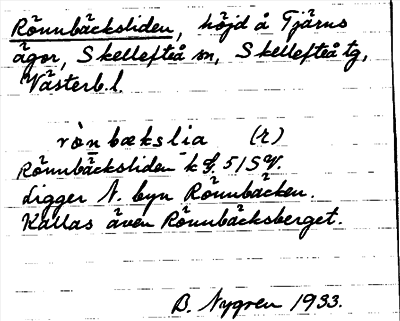 Rönnbäcksliden, höjd å Tjärns
ägor, Skellefteå sn, Skellefteå tg,
Västerb.l.
rònbækslia (r)
Rönnbäcksliden k
Ligger N. byn Rönnbäcken.
Kallas även Rönnbäcksberget.
B. Nygren 1933.